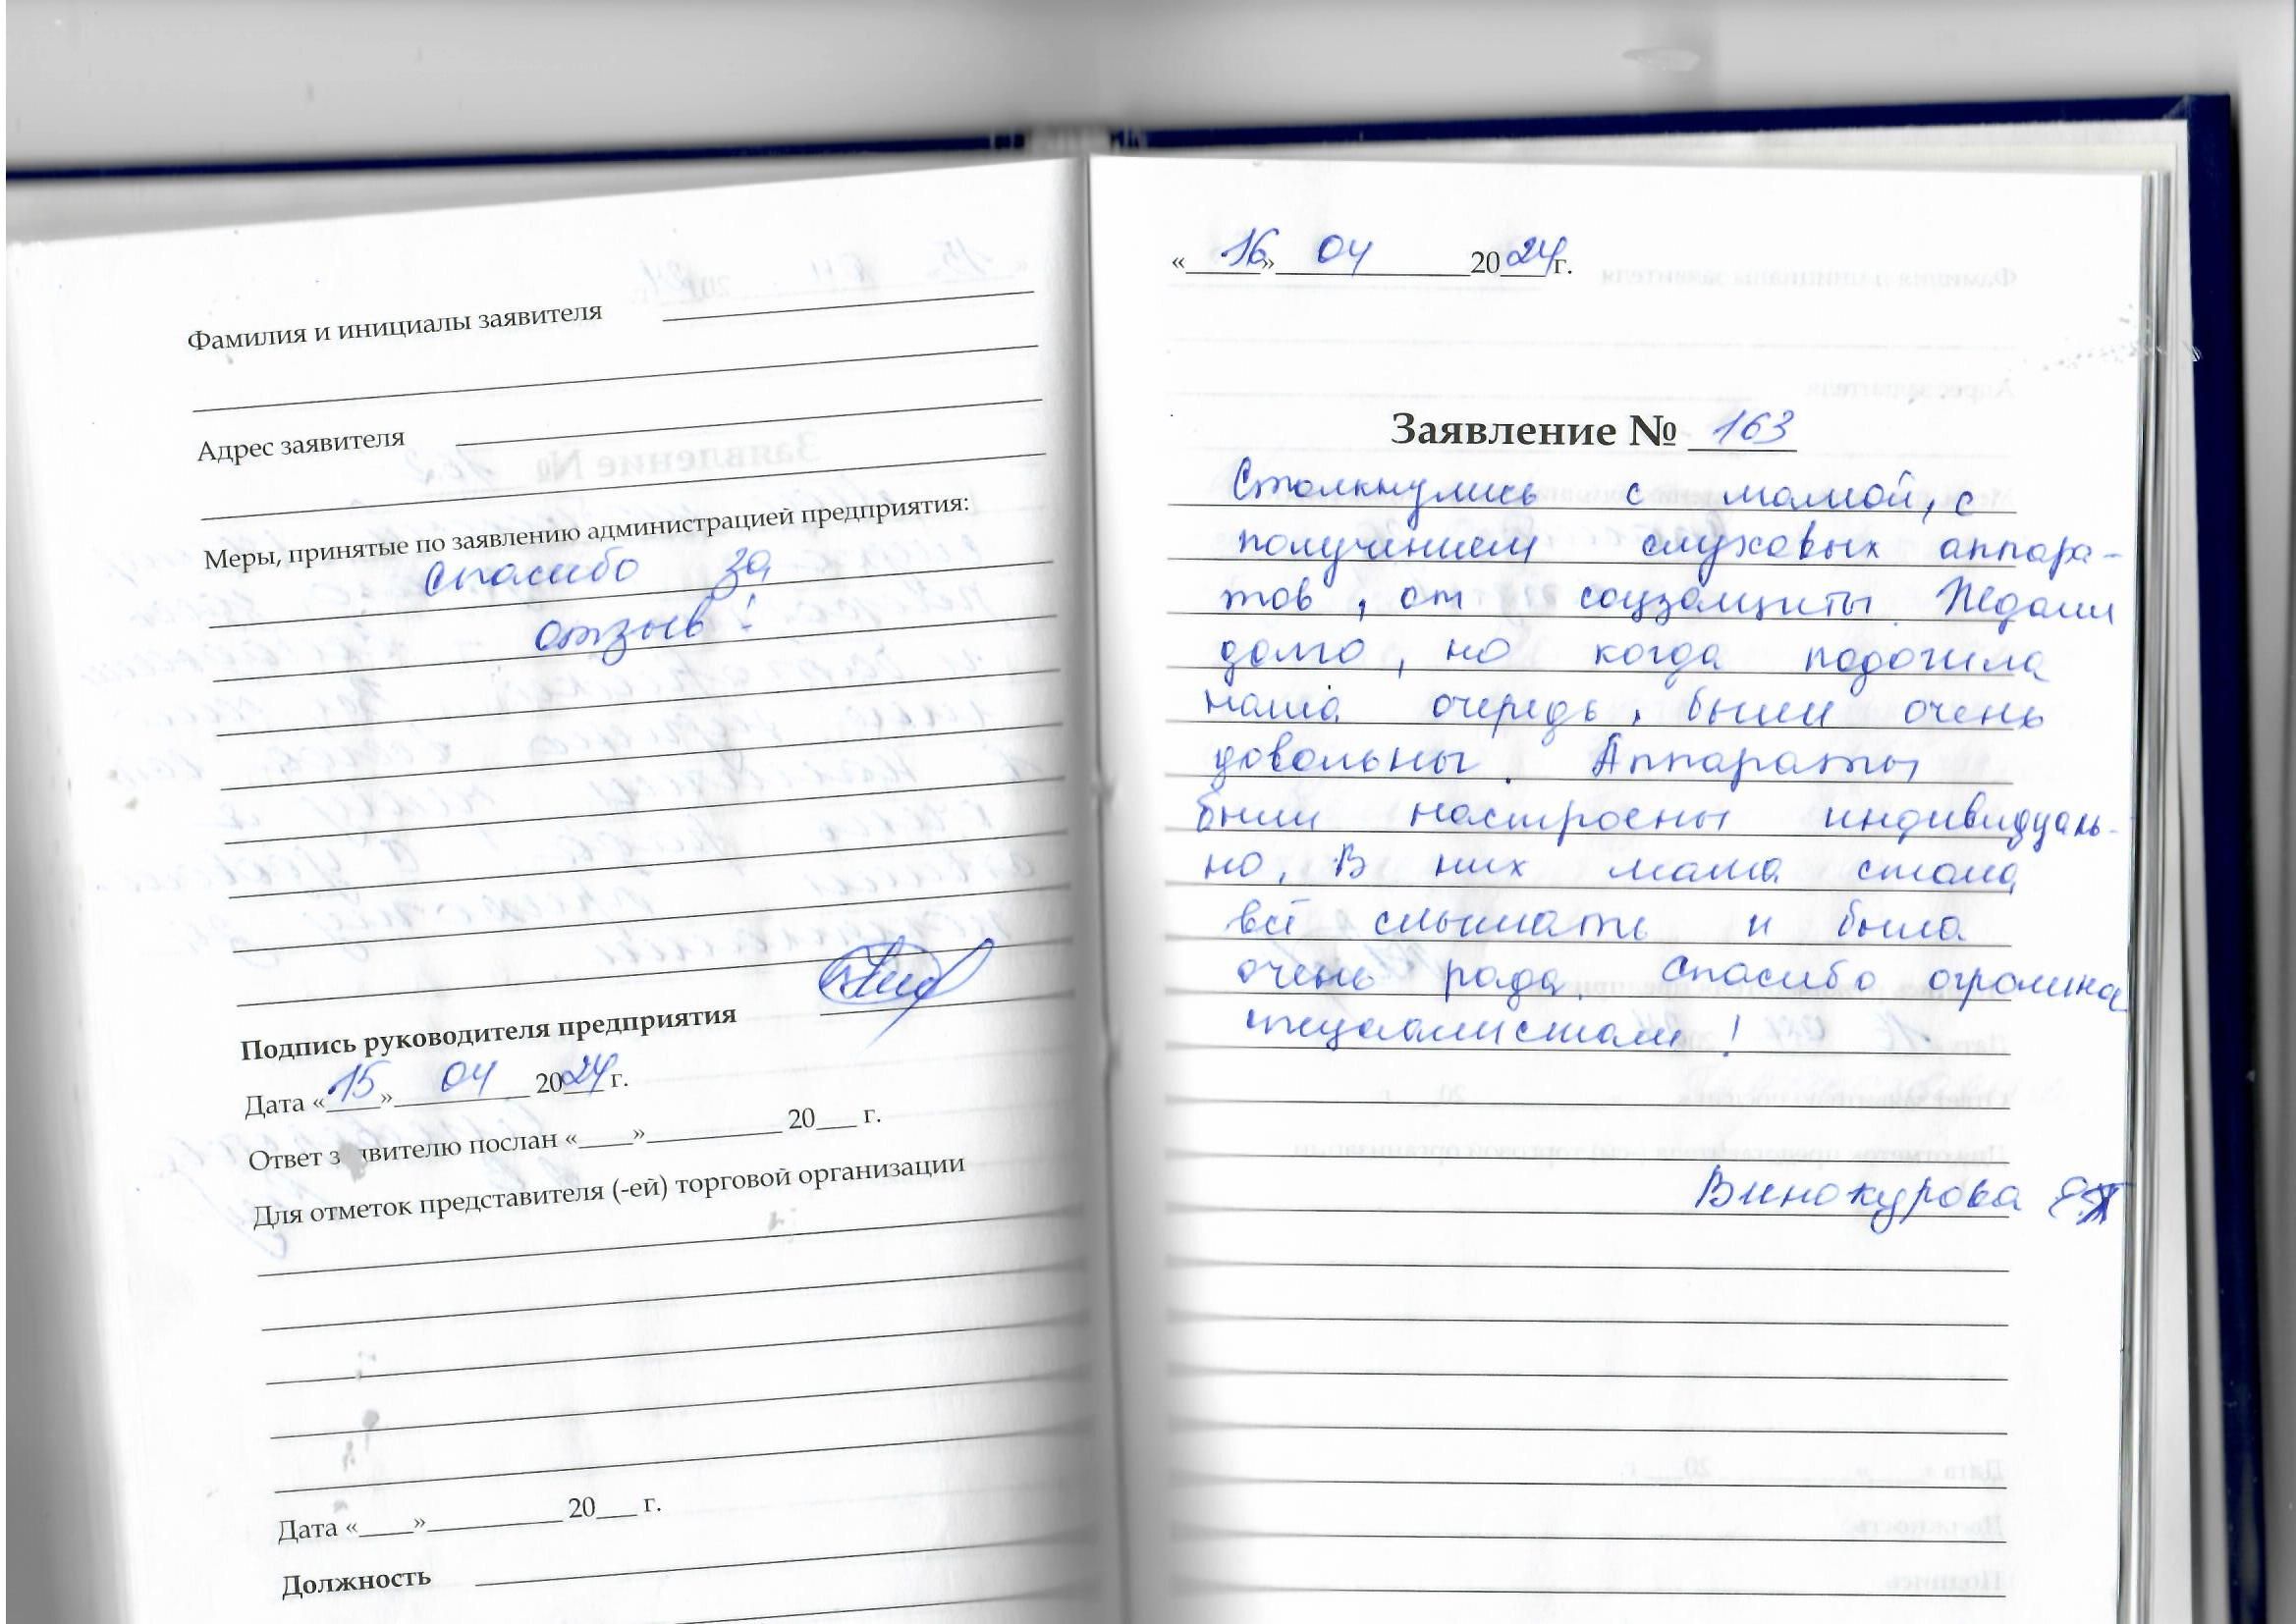 Фамилия и инициалы заявителя
Адрес заявителя
Меры, принятые по заявлению администрацией предприятия:
спасибо за
отзыв!
Подпись руководителя предприятия
Дата «15» 04 2024 г.
Ответ заявителю послан «____»__________ 20___ г.
Для отметок представителя (-ей) торговой организации
Дата «____»__________ 20___ г.
Должность
«16» 04 2024 г.
Заявление № 163
Столкнулись с мамой, с
получением слуховых аппара-
тов, от соцзащиты. Ждали
долго, но когда подошла
наша очередь, были очень
довольны. Аппараты
были настроены индивидуаль-
но. В них мама стала
всё слышать и была
очень рада. Спасибо огромное
специалистам!
Винокурова